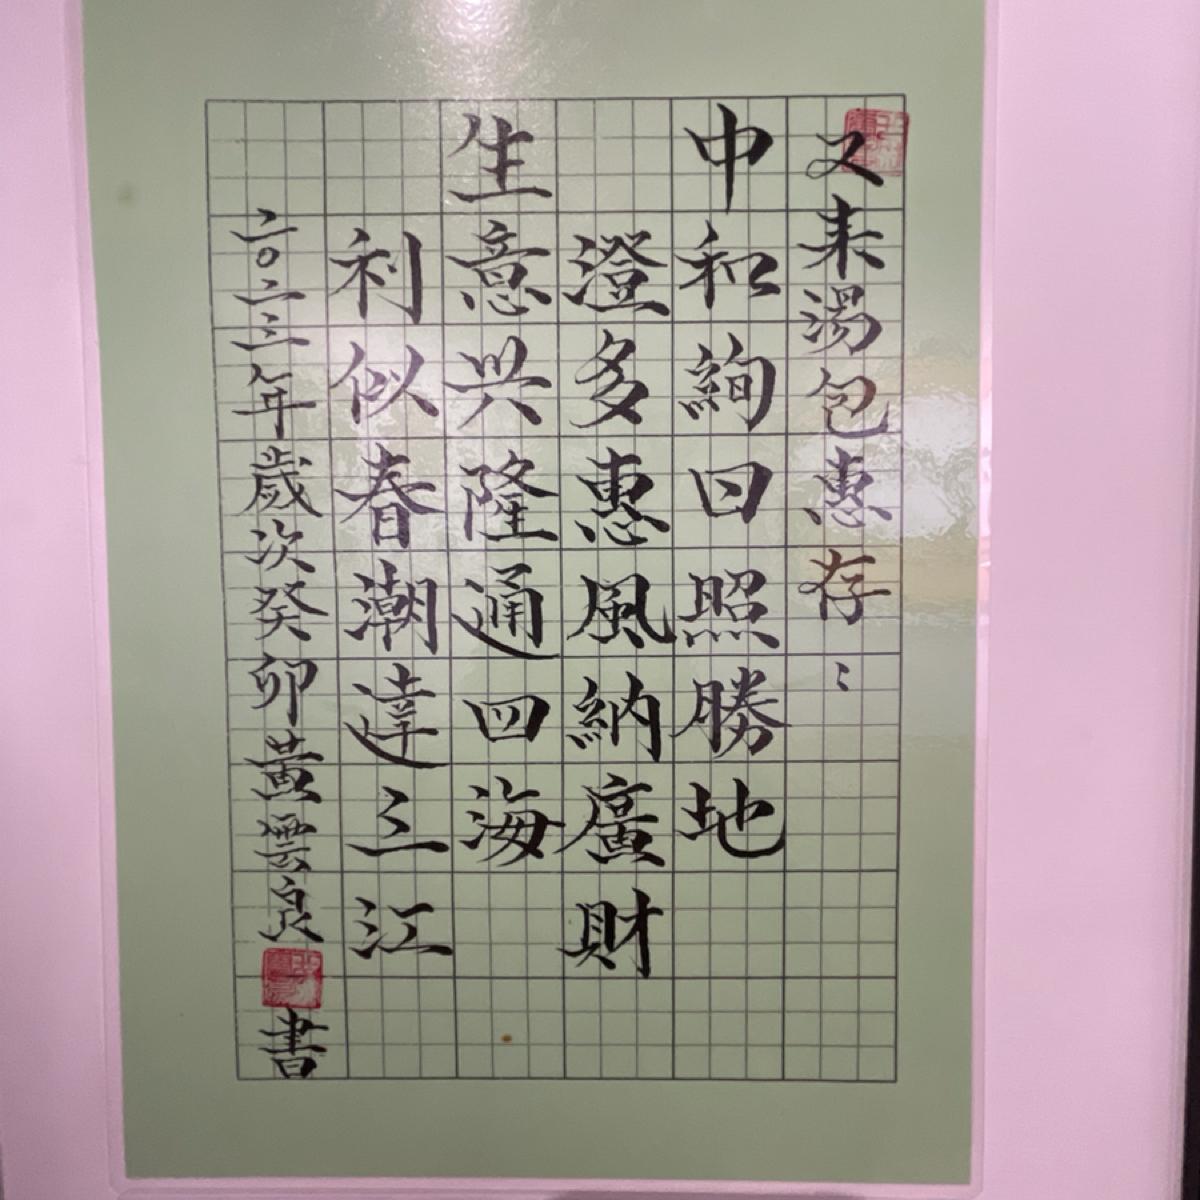 又来湯包惠存〻
中和絢日照勝地
澄多惠風納廣財
生意兴隆通四海
利似春潮達三江
二〇二三年歲次癸卯黄雲良書